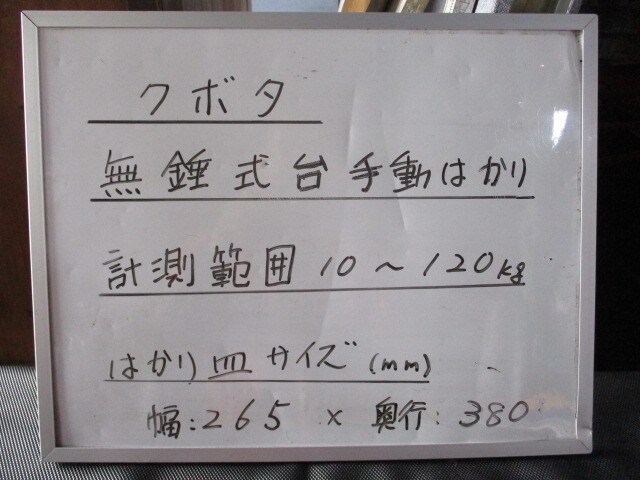 クボタ
無錘式台手動はかり
計測範囲 10～120kg
はかり皿サイズ(mm)
幅:265 × 奥行:380